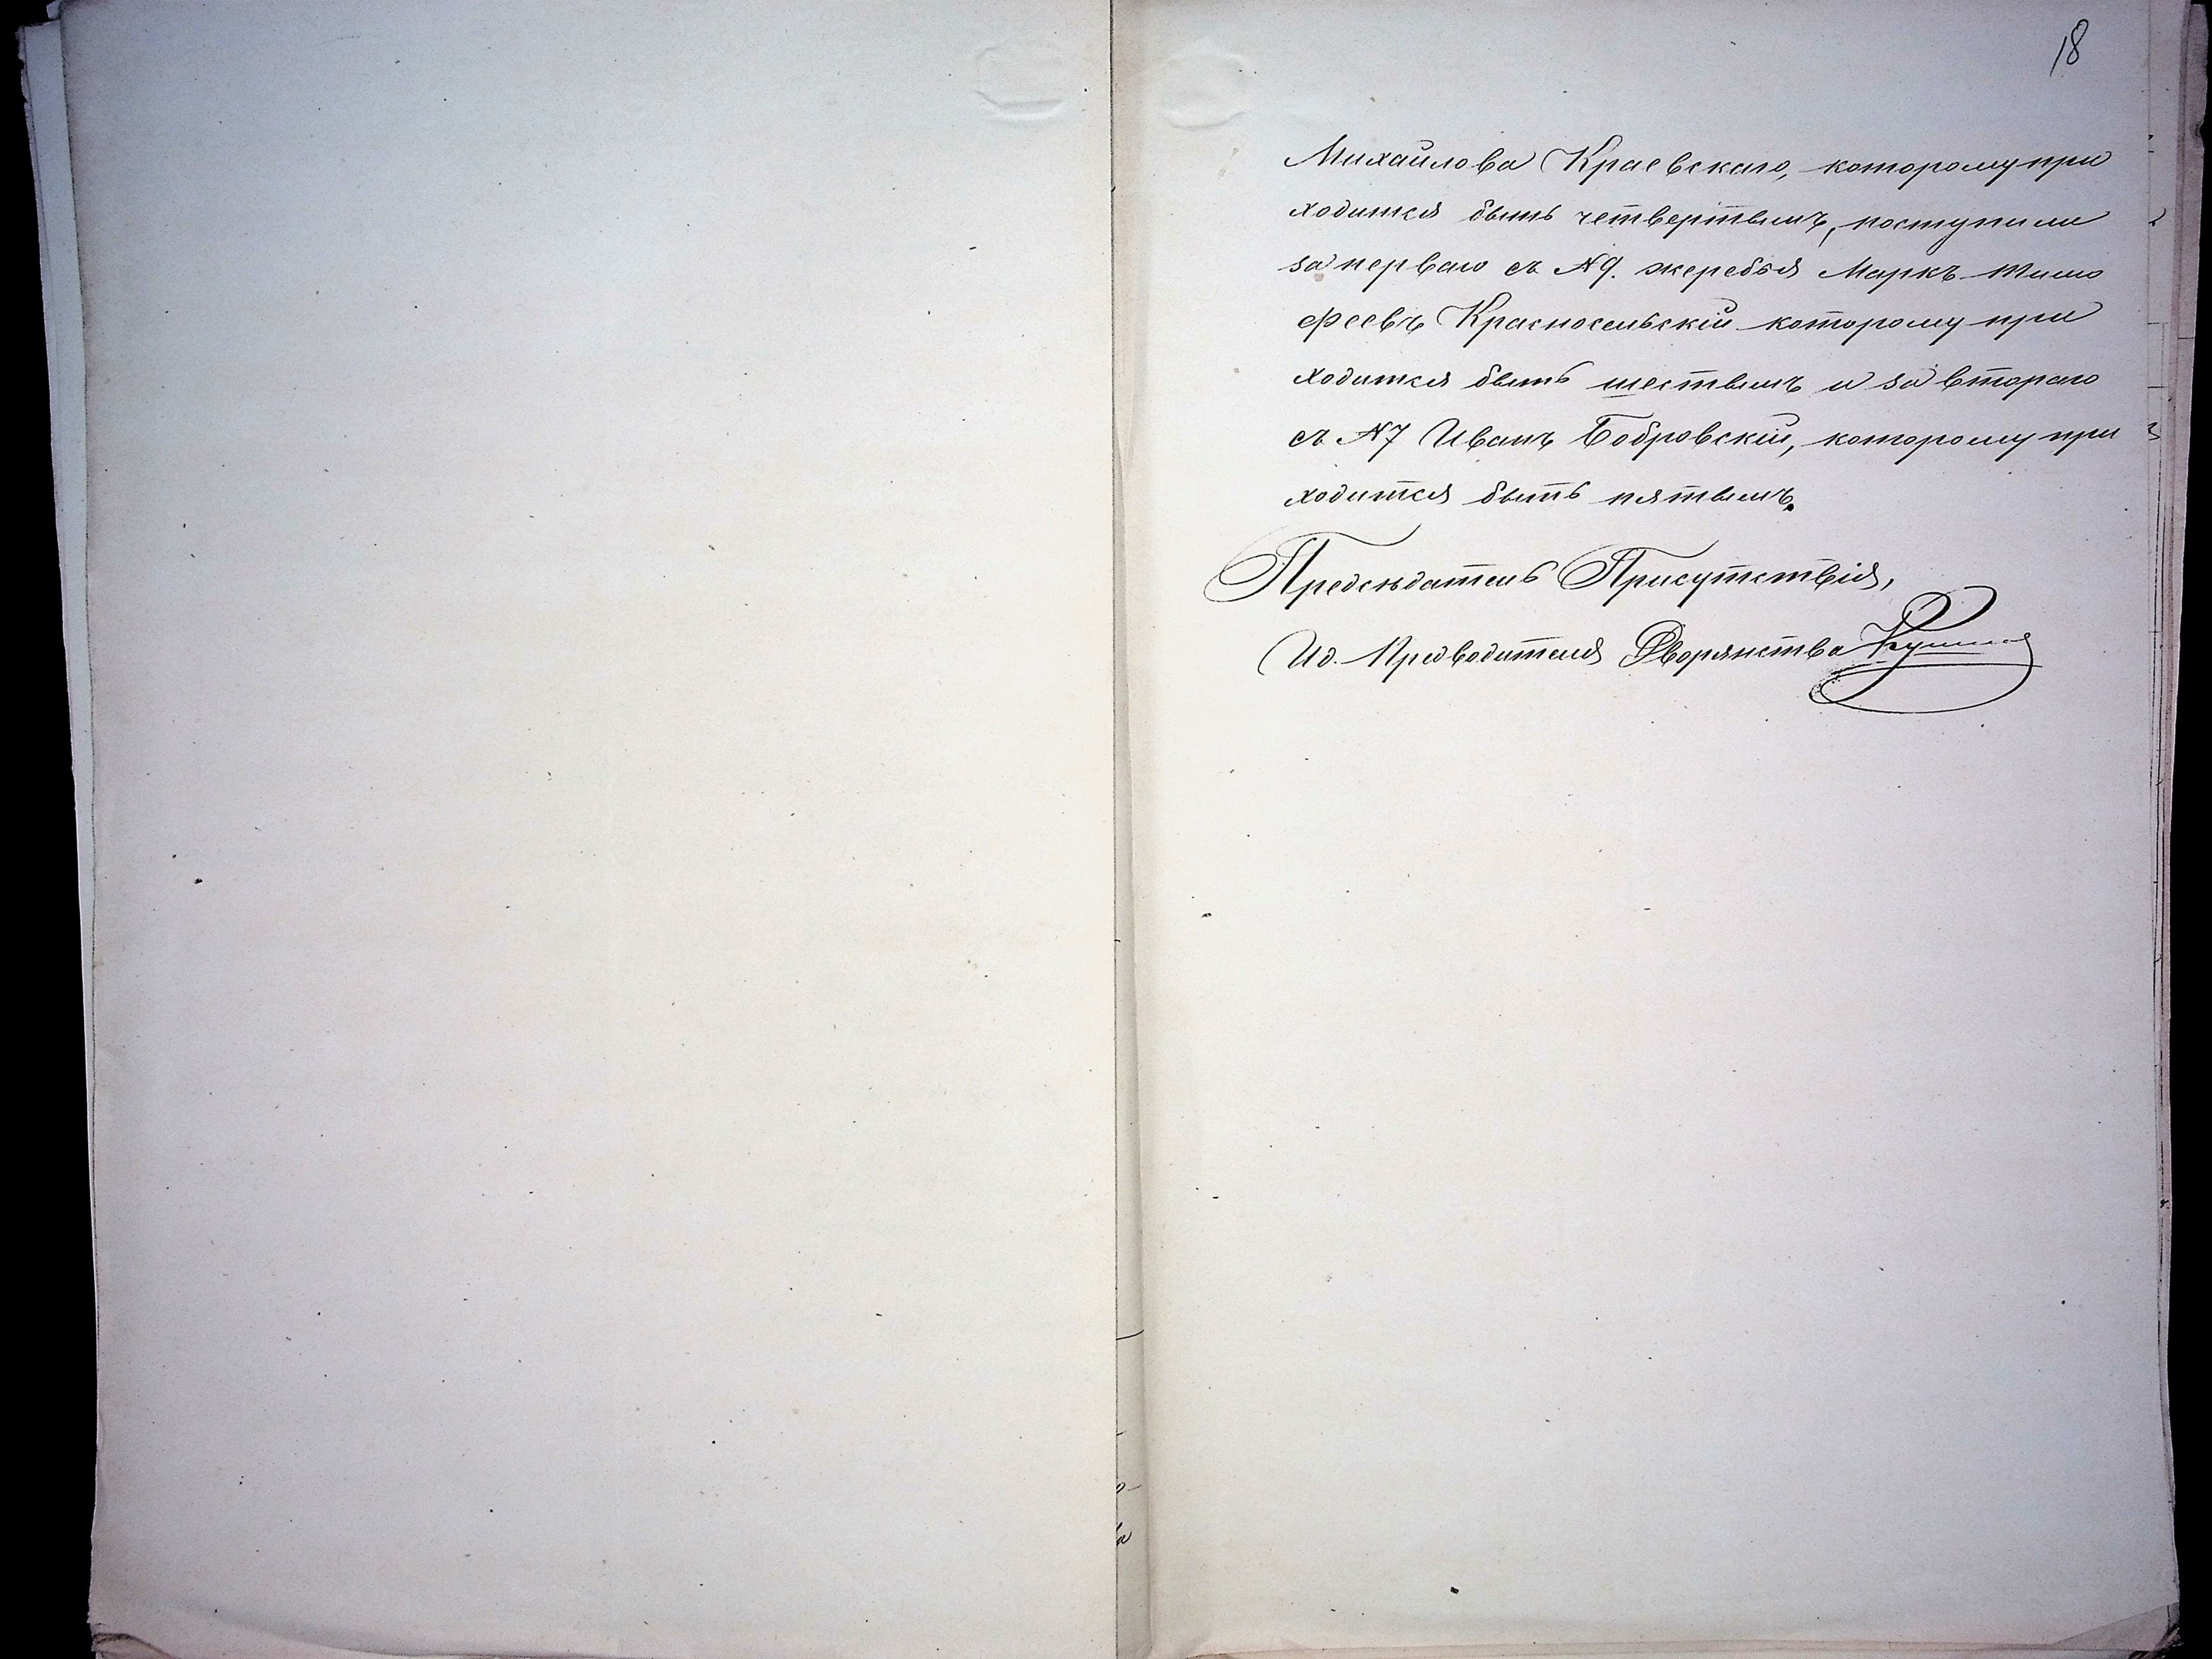 18
Михайлова Краевскаго, которому при
ходится быть четвертымъ, поступили
за перваго съ №9. жеребья Маркъ Тимо
феевъ Красносельскій которому при
ходится быть шестымъ и за втораго
съ №7 Иванъ Бобровскій, которому при
ходится быть пятымъ.
Предсѣдатель Присутствія,
Ид. Предводителя Дворянства